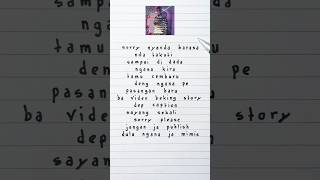 sorry nyanda barasa
nda takuti
sampai di dada
ngana kira
tamu cemburu
deng ngana pe
pasangan baru
ba video beking story
dep sephian
sayang sekali
sorry please
jangan ja publish
dulu ngana ja mimis